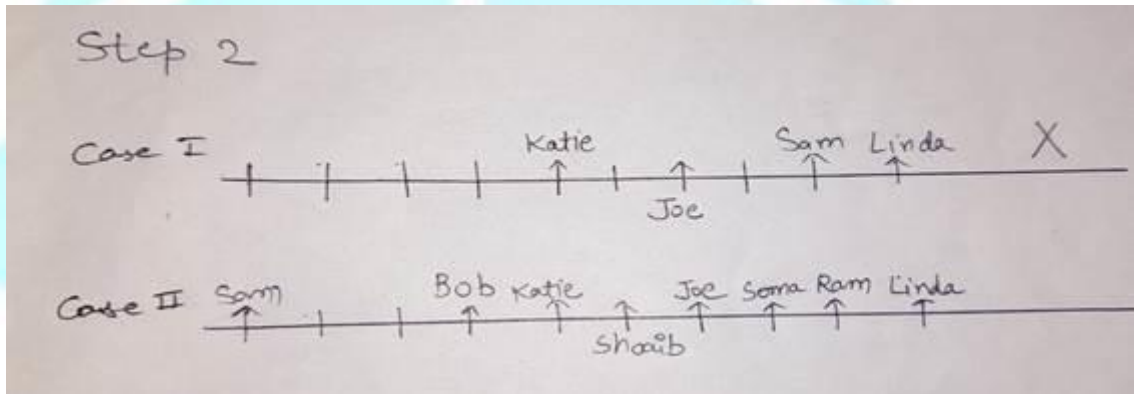 Step 2
Case I Katie Sam Linda X
Joe
Case II Sam Bob Katie Joe Soma Ram Linda
Shoaib